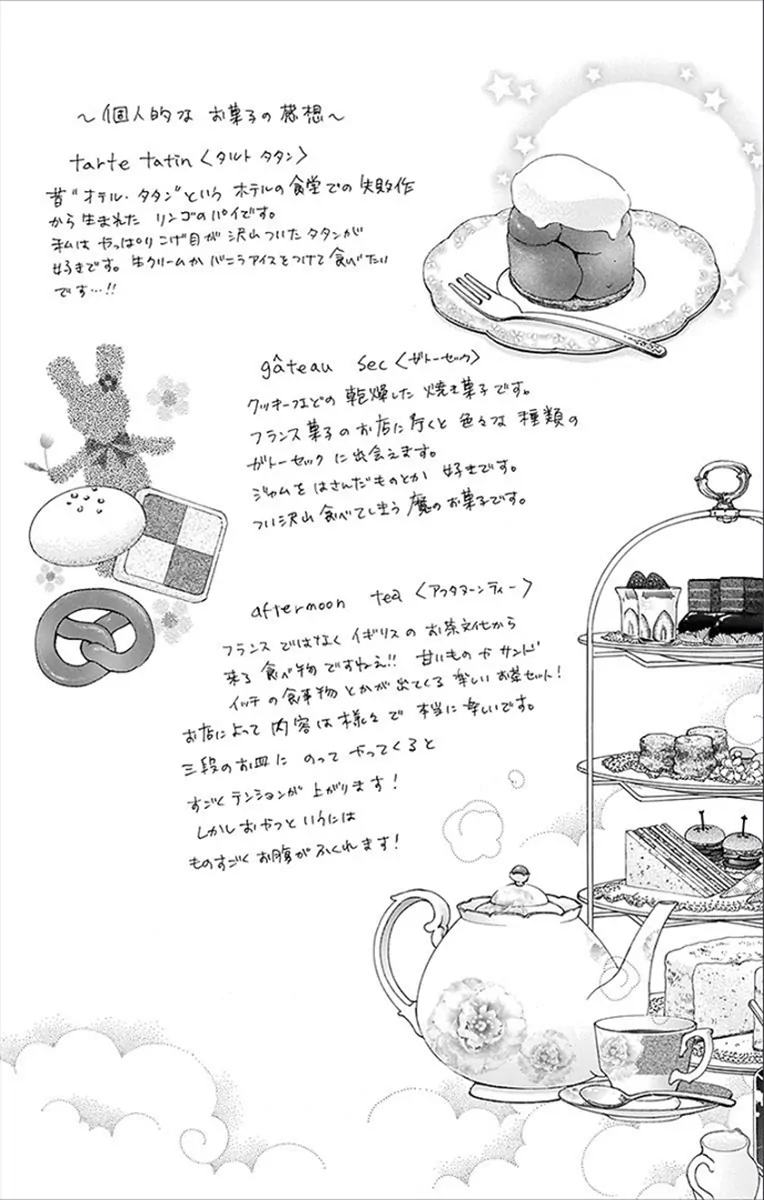 ～個人的な お菓子の感想～
tarte tatin〈タルト タタン〉
昔“オテル・タタン”という ホテルの食堂での 失敗作
から生まれた リンゴのパイです。
私は やっぱり こげ目が 沢山ついたタタンが
好きです。生クリームか バニラアイスをつけて食べたい
です…!!
gâteau sec〈ガトーセック〉
クッキーなどの 乾燥した 焼き菓子です。
フランス菓子のお店に行くと 色々な 種類の
ガトーセックに出会えます。
ジャムをはさんだものとか 好きです。
つい沢山食べてしまう 魔のお菓子です。
afternoon tea〈アフタヌーンティー〉
フランスではなく イギリスの お茶文化から
来る 食べ物ですねえ!! 甘いものや サンド
イッチの食事物とかが出てくる 楽しいお茶セット!
お店によって 内容は様々で 本当に楽しいです。
三段のお皿に のって やってくると
すごくテンションが上がります!
しかしおやつというには
ものすごくお腹がふくれます!